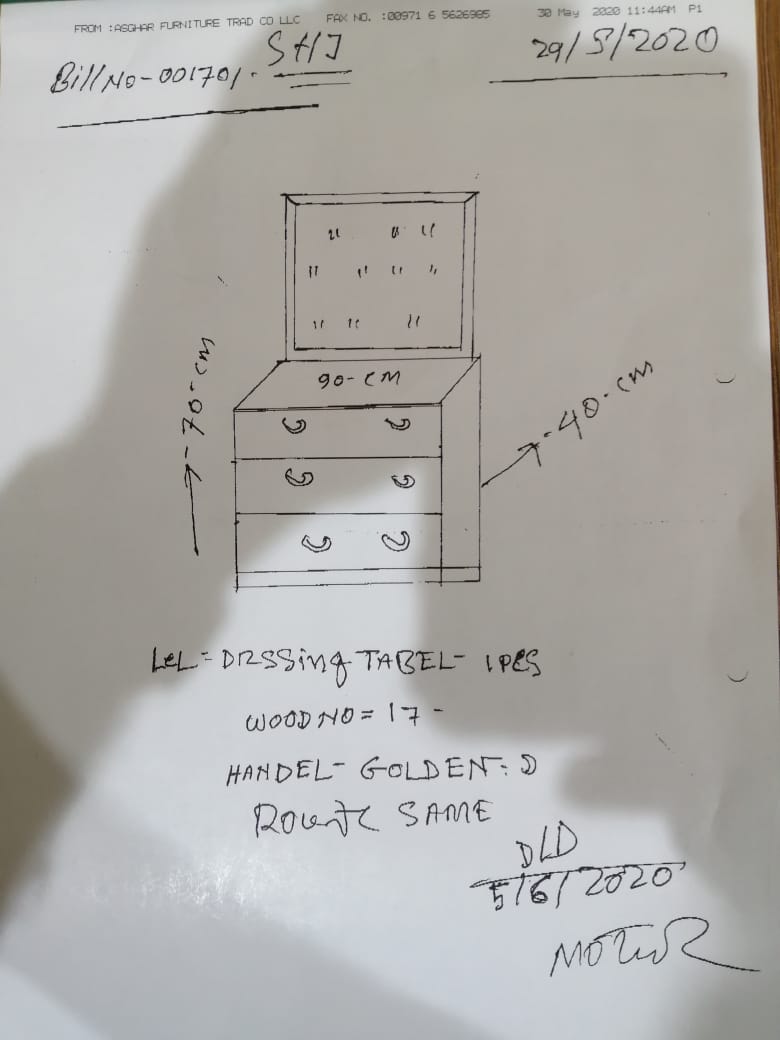 FROM :ASGHAR FURNITURE TRAD CO LLC FAX NO. :00971 6 5626985 30 May 2020 11:44AM P1
Bill No-001701. SHJ 29/5/2020
90-CM
70-cm
40.cm
DRSSing TABEL- 1PCS
WOOD NO=17-
HANDEL- GOLDEN: D
SAME
DLD
5/6/2020